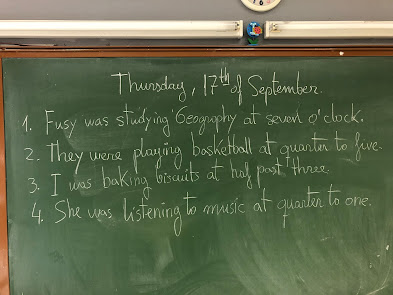 Thursday, 17th of September.
1. Fusy was studying Geography at seven o'clock.
2. They were playing basketball at quarter to five.
3. I was baking biscuits at half past three.
4. She was listening to music at quarter to one.